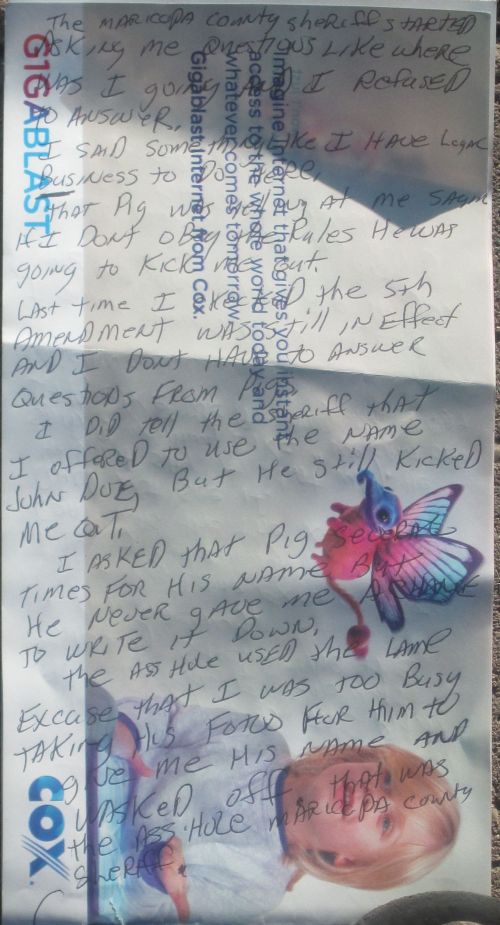 The MARICOPA COUNTY SHERIFF STARTED
ASKING ME QUESTIONS LIKE WHERE
WAS I going AND I REFUSED
TO ANSWER.
I SAID SOMETHING LIKE I HAVE LEGAL
BUSINESS TO DO HERE.
THAT PIG WAS AT ME SAYIN
IF I DONT OBEY THE RULES HE WAS
going to KICK ME OUT.
LAST TIME I CHECKED the 5th
AMENDMENT WAS STILL IN EFFECT
AND I DONT HAVE TO ANSWER
QUESTIONS FROM PIGS
I DID TELL the SHERIFF THAT
I OFFERED TO USE the NAME
JOHN DOE, BUT HE STILL KICKED
ME OUT.
I ASKED THAT PIG SEVERAL
TIMES FOR HIS NAME BUT
HE NEVER GAVE ME A CHANCE
TO WRITE IT DOWN.
the ASS HOLE USED the LAME
EXCUSE THAT I WAS TOO BUSY
TAKING HIS FOTOO FOR HIM TO
GIVE ME HIS NAME AND
WASKED OFF THAT WAS
the ASS HOLE MARICOPA COUNTY
SHERIFF.
GIGABLAST
Imagine Internet that gives you instant
access to the whole world today and
whatever comes tomorrow.
Gigablast Internet from Cox.
COX